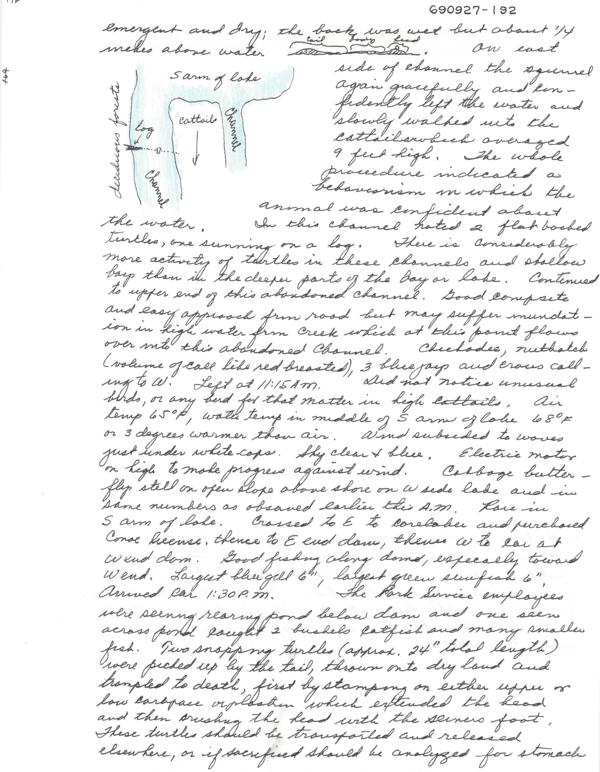 690927-192
emergent and dry; the back was wet but about 1/4
inches above water tail body head. On east
side of channel the squirrel
again gracefully and con-
fidently left the water and
slowly walked into the
cattails which averaged
9 feet high. The whole
procedure indicated a
behaviorism in which the
animal was confident about
S arm of lake
deciduous forests
log
cattails
Channel
Channel
the water. In this channel noted 2 flat backed
turtles, one sunning on a log. There is considerably
more activity of turtles in these channels and shallow
bays than in the deeper parts of the Bay or lake. Continued
to upper end of this abandoned channel. Good campsite
and easy approach from road but may suffer inundat-
ion in high water from Creek which at this point flows
over into this abandoned Channel. Chickadee, nuthatch
(volume of call like red breasted), 3 bluejays and crows call-
ing to W. Left at 11:15 AM. Did not notice unusual
birds, or any bird for that matter in high cattails. Air
temp 65°F, water temp in middle of S arm of lake 68°F
or 3 degrees warmer than air. Wind subsided to waves
just under white caps. Sky clear & blue. Electric motor
on high to make progress against wind. Cabbage butter-
fly still on open slope above shore on W side lake and in
same numbers as observed earlier this A.M. Rare in
S arm of lake. Crossed to E to caretaker and purchased
Canoe license, thence to E end dam, thence W to car at
W end dam. Good fishing along dam, especially toward
W end. Largest bluegill 6", largest green sunfish 6".
Arrived car 1:30 P.M. The Park Service employees
were seining rearing pond below dam and one seen
across pond caught 2 bushels catfish and many smaller
fish. Two snapping turtles (approx. 24" total length)
were picked up by the tail, thrown onto dry land and
trampled to death, first by stamping on either upper or
low carapace or plastron which extended the head
and then crushing the head with the seiners foot.
These turtles should be transported and released
elsewhere, or if sacrificed should be analyzed for stomach